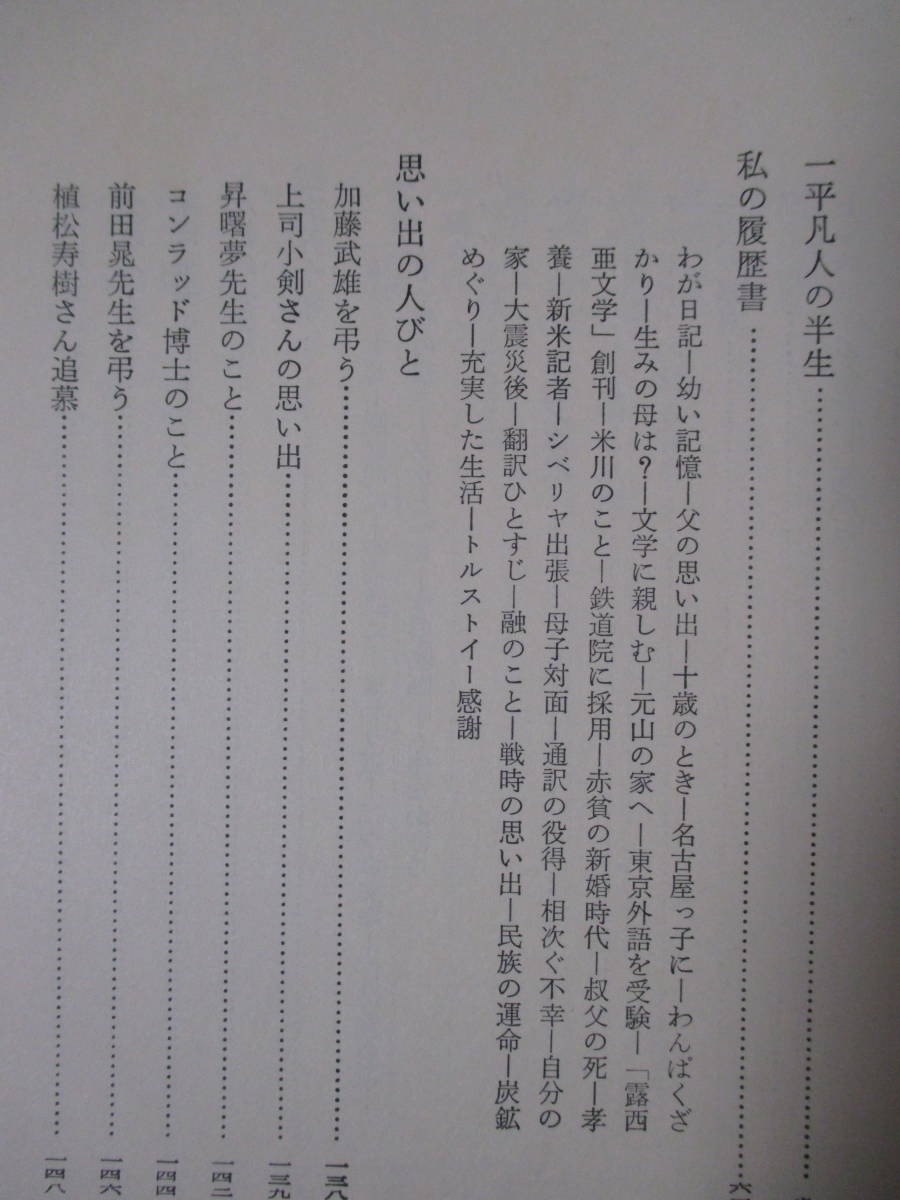 一平凡人の半生……………………
私の履歴書……………………六
わが日記―幼い記憶―父の思い出―十歳のとき―名古屋っ子に―わんぱくざ
かり―生みの母は?―文学に親しむ―元山の家へ―東京外語を受験―「露西
亜文学」創刊―米川のこと―鉄道院に採用―赤貧の新婚時代―叔父の死―孝
養―新米記者―シベリヤ出張―母子対面―通訳の役得―相次ぐ不幸―自分の
家―大震災後―翻訳ひとすじ―融のこと―戦時の思い出―民族の運命―炭鉱
めぐり―充実した生活―トルストイ―感謝
思い出の人びと
加藤武雄を弔う……………………一三八
上司小剣さんの思い出……………………一三九
昇曙夢先生のこと……………………一四二
コンラッド博士のこと……………………一四四
前田晁先生を弔う……………………一四六
植松寿樹さん追慕……………………一四八